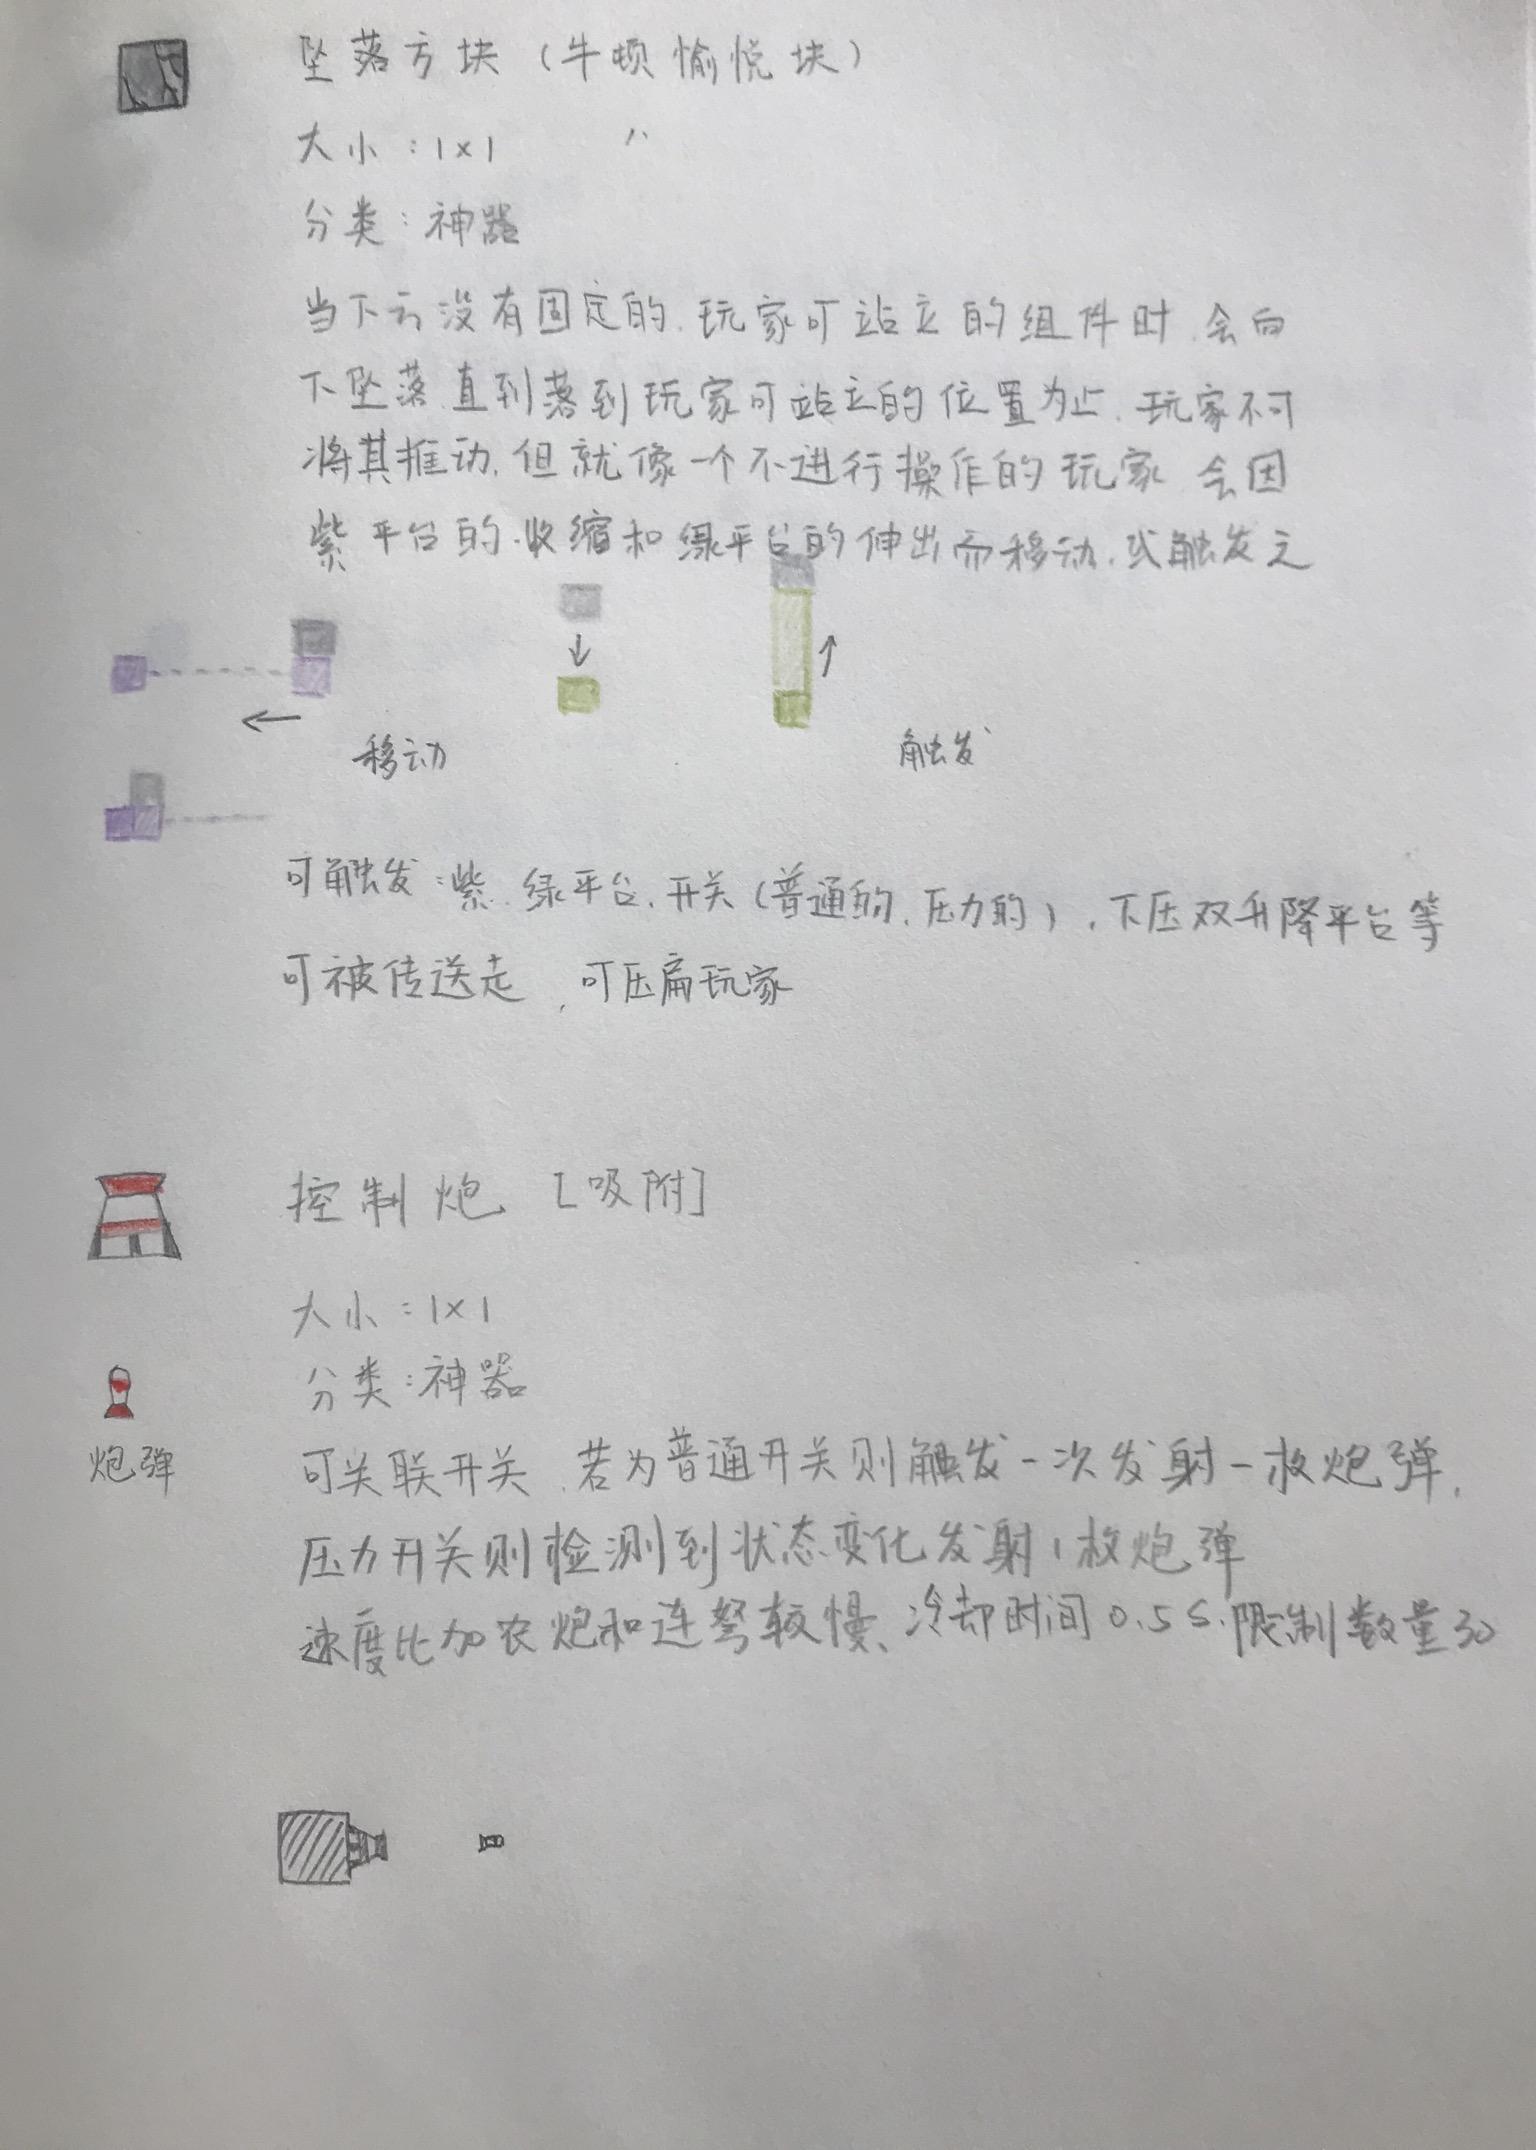 坠落方块（牛顿愉悦块）
大小：1×1
分类：神器
当下方没有固定的、玩家可站立的组件时，会向
下坠落，直到落到玩家可站立的位置为止，玩家不可
将其推动，但就像一个不进行操作的玩家，会因
紫平台的收缩和绿平台的伸出而移动，或触发之
移动
触发
可触发：紫、绿平台、开关（普通的、压力的）、下压双升降平台等
可被传送走，可压扁玩家
控制炮 [吸附]
大小：1×1
分类：神器
炮弹
可关联开关，若为普通开关则触发一次发射一枚炮弹，
压力开关则检测到状态变化发射1枚炮弹
速度比加农炮和连弩较慢、冷却时间0.5s，限制数量30